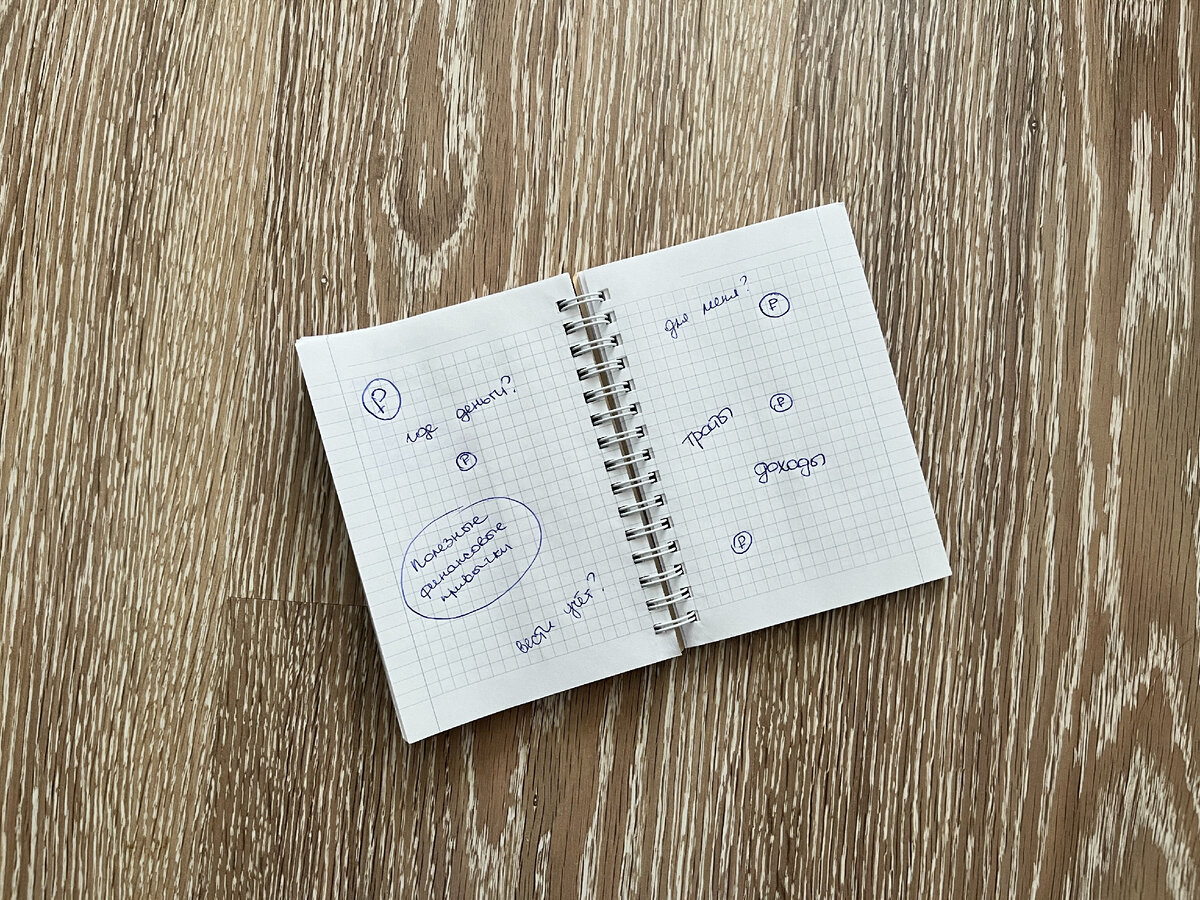 ₽
где деньги?
₽
Полезные
финансовые
привычки
вести учёт?
для меня?
₽
₽
траты
доходы
₽